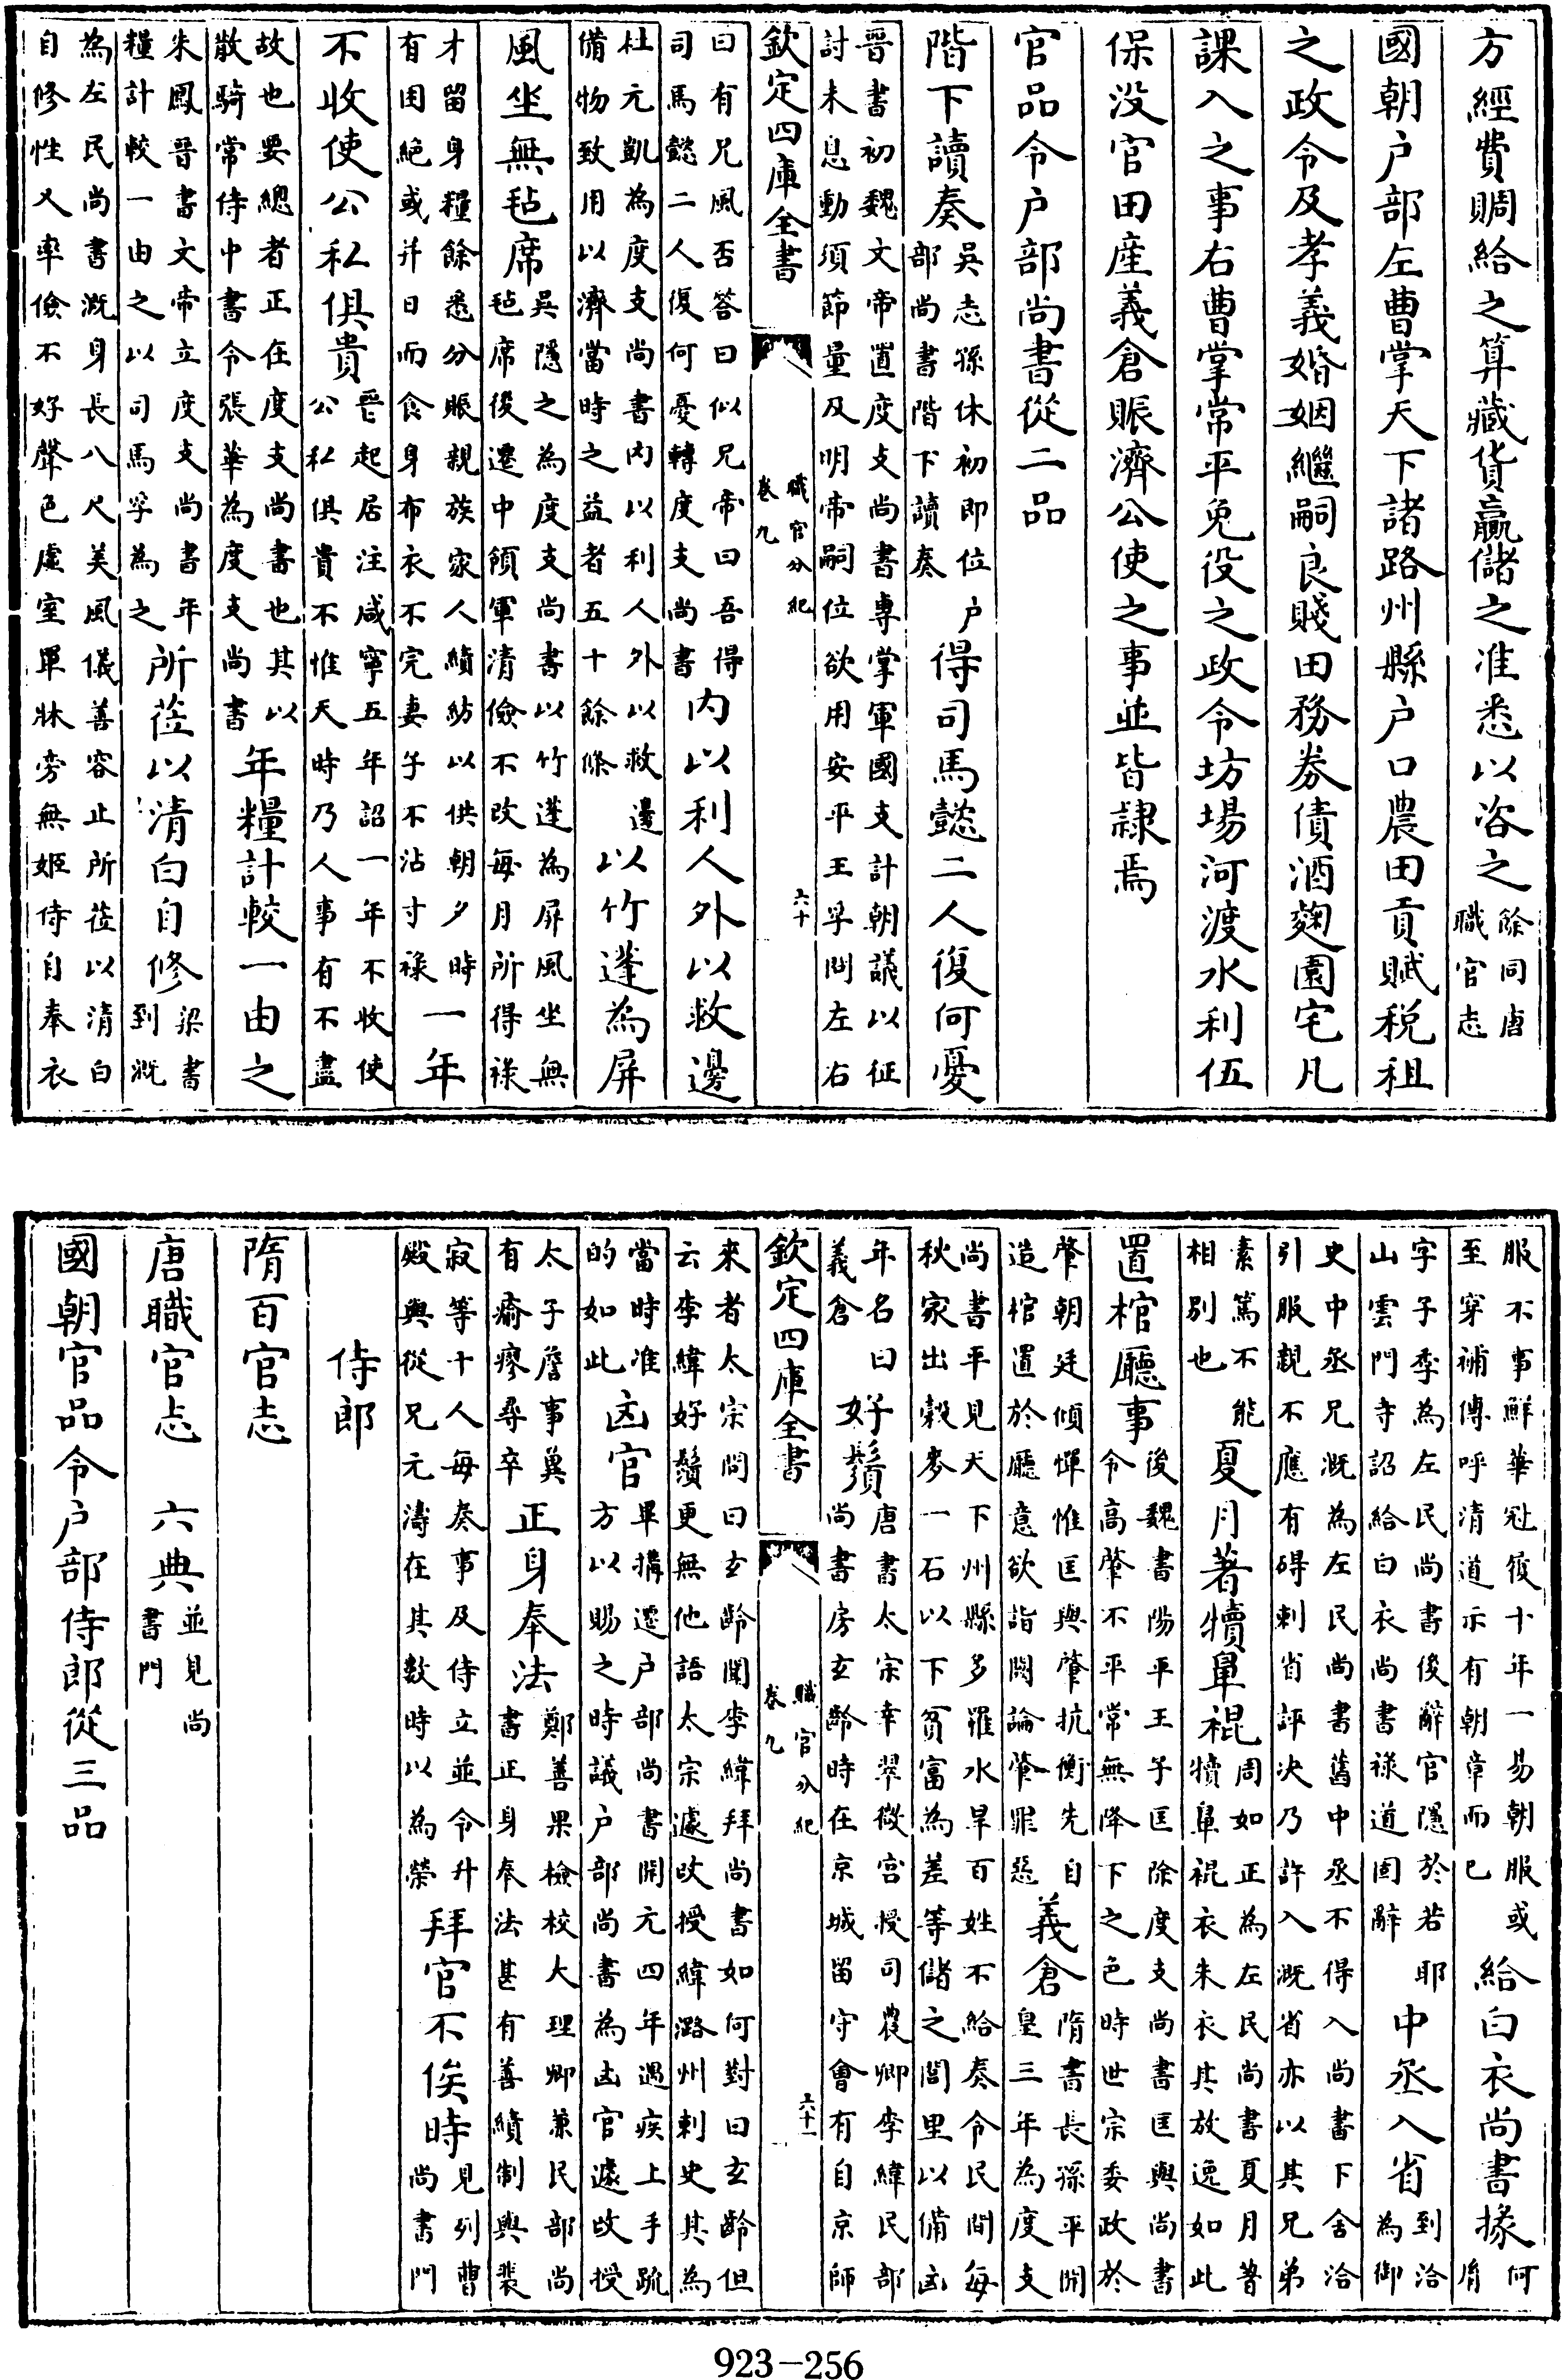 方經費賙給之算藏貨贏儲之准悉以咨之餘同唐
職官志
國朝户部左曹掌天下諸路州縣户口農田貢賦税租
之政令及孝義婚姻繼嗣良賤田務券債酒麴園宅凡
課入之事右曹掌常平免役之政令坊場河渡水利伍
保没官田産義倉賑濟公使之事並皆隷焉
官品令户部尚書從二品
階下讀奏吳志孫休初即位户
部尚書階下讀奏得司馬懿二人復何憂
晉書初魏文帝置度支尚書專掌軍國支計朝議以征
討未息動須節量及明帝嗣位欲用安平王孚問左右
欽定四庫全書 職官分紀 卷九 六十
曰有兄風否答曰似兄帝曰吾得
司馬懿二人復何憂轉度支尚書内以利人外以救邊
杜元凱為度支尚書内以利人外以救邊
備物致用以濟當時之益者五十餘條以竹蓬為屏
風坐無毡席吳隱之為度支尚書以竹蓬為屏風坐無
毡席後遷中領軍清儉不改毎月所得禄
才留身糧餘悉分賑親族家人績紡以供朝夕時
有困絶或并日而食身布衣不完妻子不沾寸禄一年
不收使公私俱貴晉起居注咸寧五年詔一年不收使
公私俱貴不惟天時乃人事有不盡
故也要總者正在度支尚書也其以
散騎常侍中書令張華為度支尚書年糧計較一由之
朱鳳晉書文帝立度支尚書年
糧計較一由之以司馬孚為之所莅以清白自修梁書
到溉
為左民尚書溉身長八尺美風儀善容止所莅以清白
自修性又率儉不好聲色虚室單牀旁無姬侍自奉衣
服不事鮮華冠履十年一易朝服或
至穿補傳呼清道示有朝章而已給白衣尚書掾何
胤
字子季為左民尚書後辭官隱於若耶
山雲門寺詔給白衣尚書禄道固辭中丞入省到洽
為御
史中丞兄溉為左民尚書舊中丞不得入尚書下舍洽
引服親不應有碍刺省評决乃許入溉省亦以其兄弟
素篤不能
相别也夏月著犢鼻裩周如正為左民尚書夏月著
犢鼻裩衣朱衣其放逸如此
置棺廳事後魏書陽平王子匡除度支尚書匡與尚書
令高肇不平常無降下之色時世宗委政於
肇朝廷傾憚惟匡與肇抗衡先自
造棺置於廳意欲詣闕論肇罪惡義倉隋書長孫平開
皇三年為度支
尚書平見天下州縣多罹水旱百姓不給奏令民間毎
秋家出榖麥一石以下貧富為差等儲之閭里以備凶
年名曰
義倉好鬚唐書太宗幸翠微宫授司農卿李緯民部
尚書房玄齡時在京城留守會有自京師
欽定四庫全書 職官分紀 卷九 六十一
來者太宗問曰玄齡聞李緯拜尚書如何對曰玄齡但
云李緯好鬚更無他語太宗遽改授緯潞州刺史其為
當時准
的如此凶官畢構遷户部尚書開元四年遇疾上手疏
方以賜之時議户部尚書為凶官遽改授
太子詹事冀
有瘉瘳尋卒正身奉法鄭善果檢校大理卿兼民部尚
書正身奉法甚有善績制與裴
寂等十人毎奏事及侍立並令升
殿與從兄元濤在其數時以為榮拜官不俟時見列曹
尚書門
侍郎
隋百官志
唐職官志 六典並見尚
書門
國朝官品令户部侍郎從三品
923-256